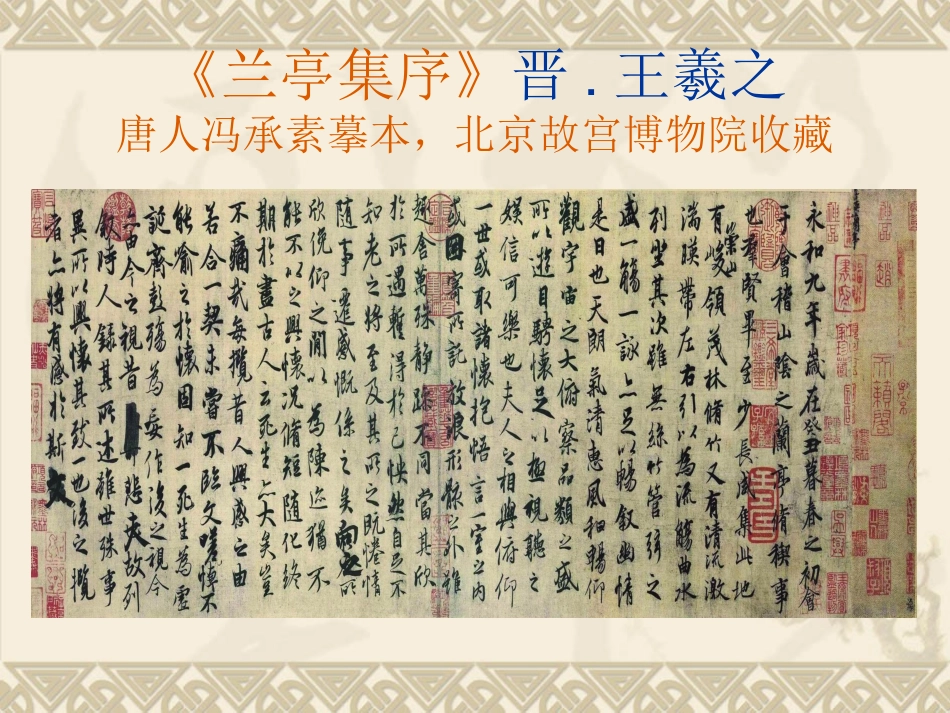 《兰亭集序》晋.王羲之
唐人冯承素摹本，北京故宫博物院收藏
永和九年歲在癸丑暮春之初會
于會稽山陰之蘭亭脩稧事
也羣賢畢至少長咸集此地
有崇山峻領茂林脩竹又有清流激
湍暎帶左右引以為流觴曲水
列坐其次雖無絲竹管弦之
盛一觴一詠亦足以暢敘幽情
是日也天朗氣清惠風和暢仰
觀宇宙之大俯察品類之盛
所以遊目騁懷足以極視聽之
娛信可樂也夫人之相與俯仰
一世或取諸懷抱悟言一室之內
或因寄所託放浪形骸之外雖
趣舍萬殊靜躁不同當其欣
於所遇暫得於己怏然自足不
知老之將至及其所之既惓情
隨事遷感慨係之矣向之所
欣俛仰之閒以為陳迹猶不
能不以之興懷況脩短隨化終
期於盡古人云死生亦大矣豈
不痛哉每攬昔人興感之由
若合一契未嘗不臨文嗟悼不
能喻之於懷固知一死生為虛
誕齊彭殤為妄作後之視今
亦由今之視昔悲夫故列
敘時人錄其所述雖世殊事
異所以興懷其致一也後之攬
者亦將有感於斯文